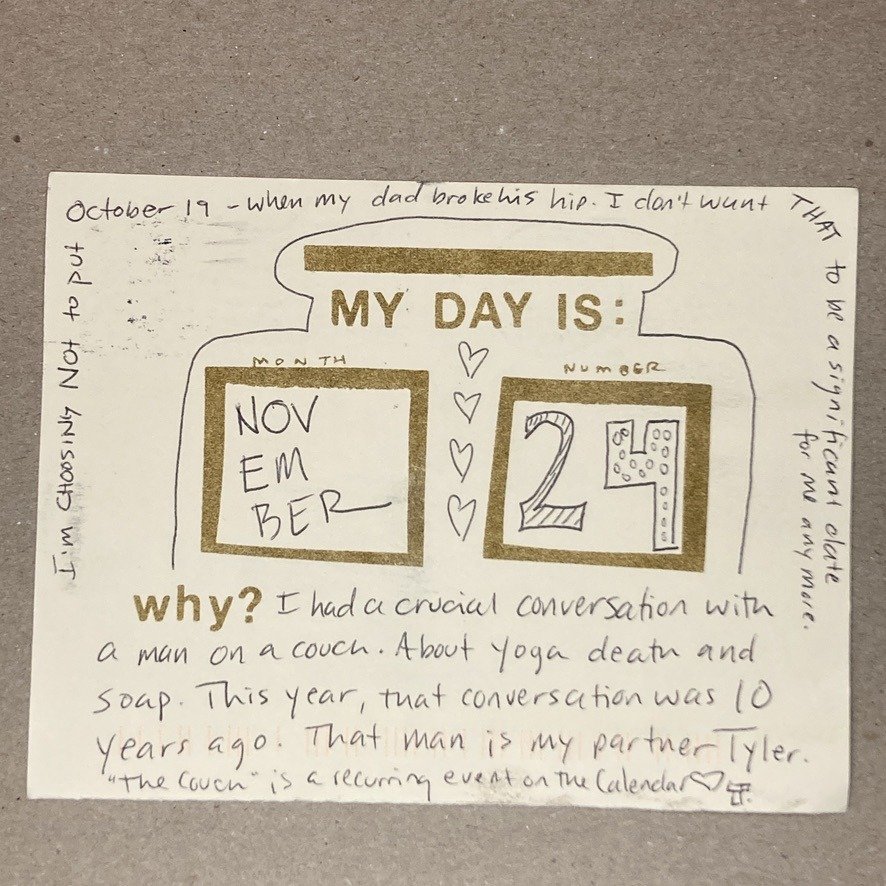 I'm CHOOSING NOT to put
October 19 - when my dad broke his hip. I don't want
THAT to be a significant date
for me anymore.
MY DAY IS:
MONTH
NUMBER
NOV
EM
BER
24
why? I had a crucial conversation with
a man on a couch. About yoga death and
soap. This year, that conversation was 10
years ago. That man is my partner Tyler.
"The Couch" is a recurring event on the Calendar♡